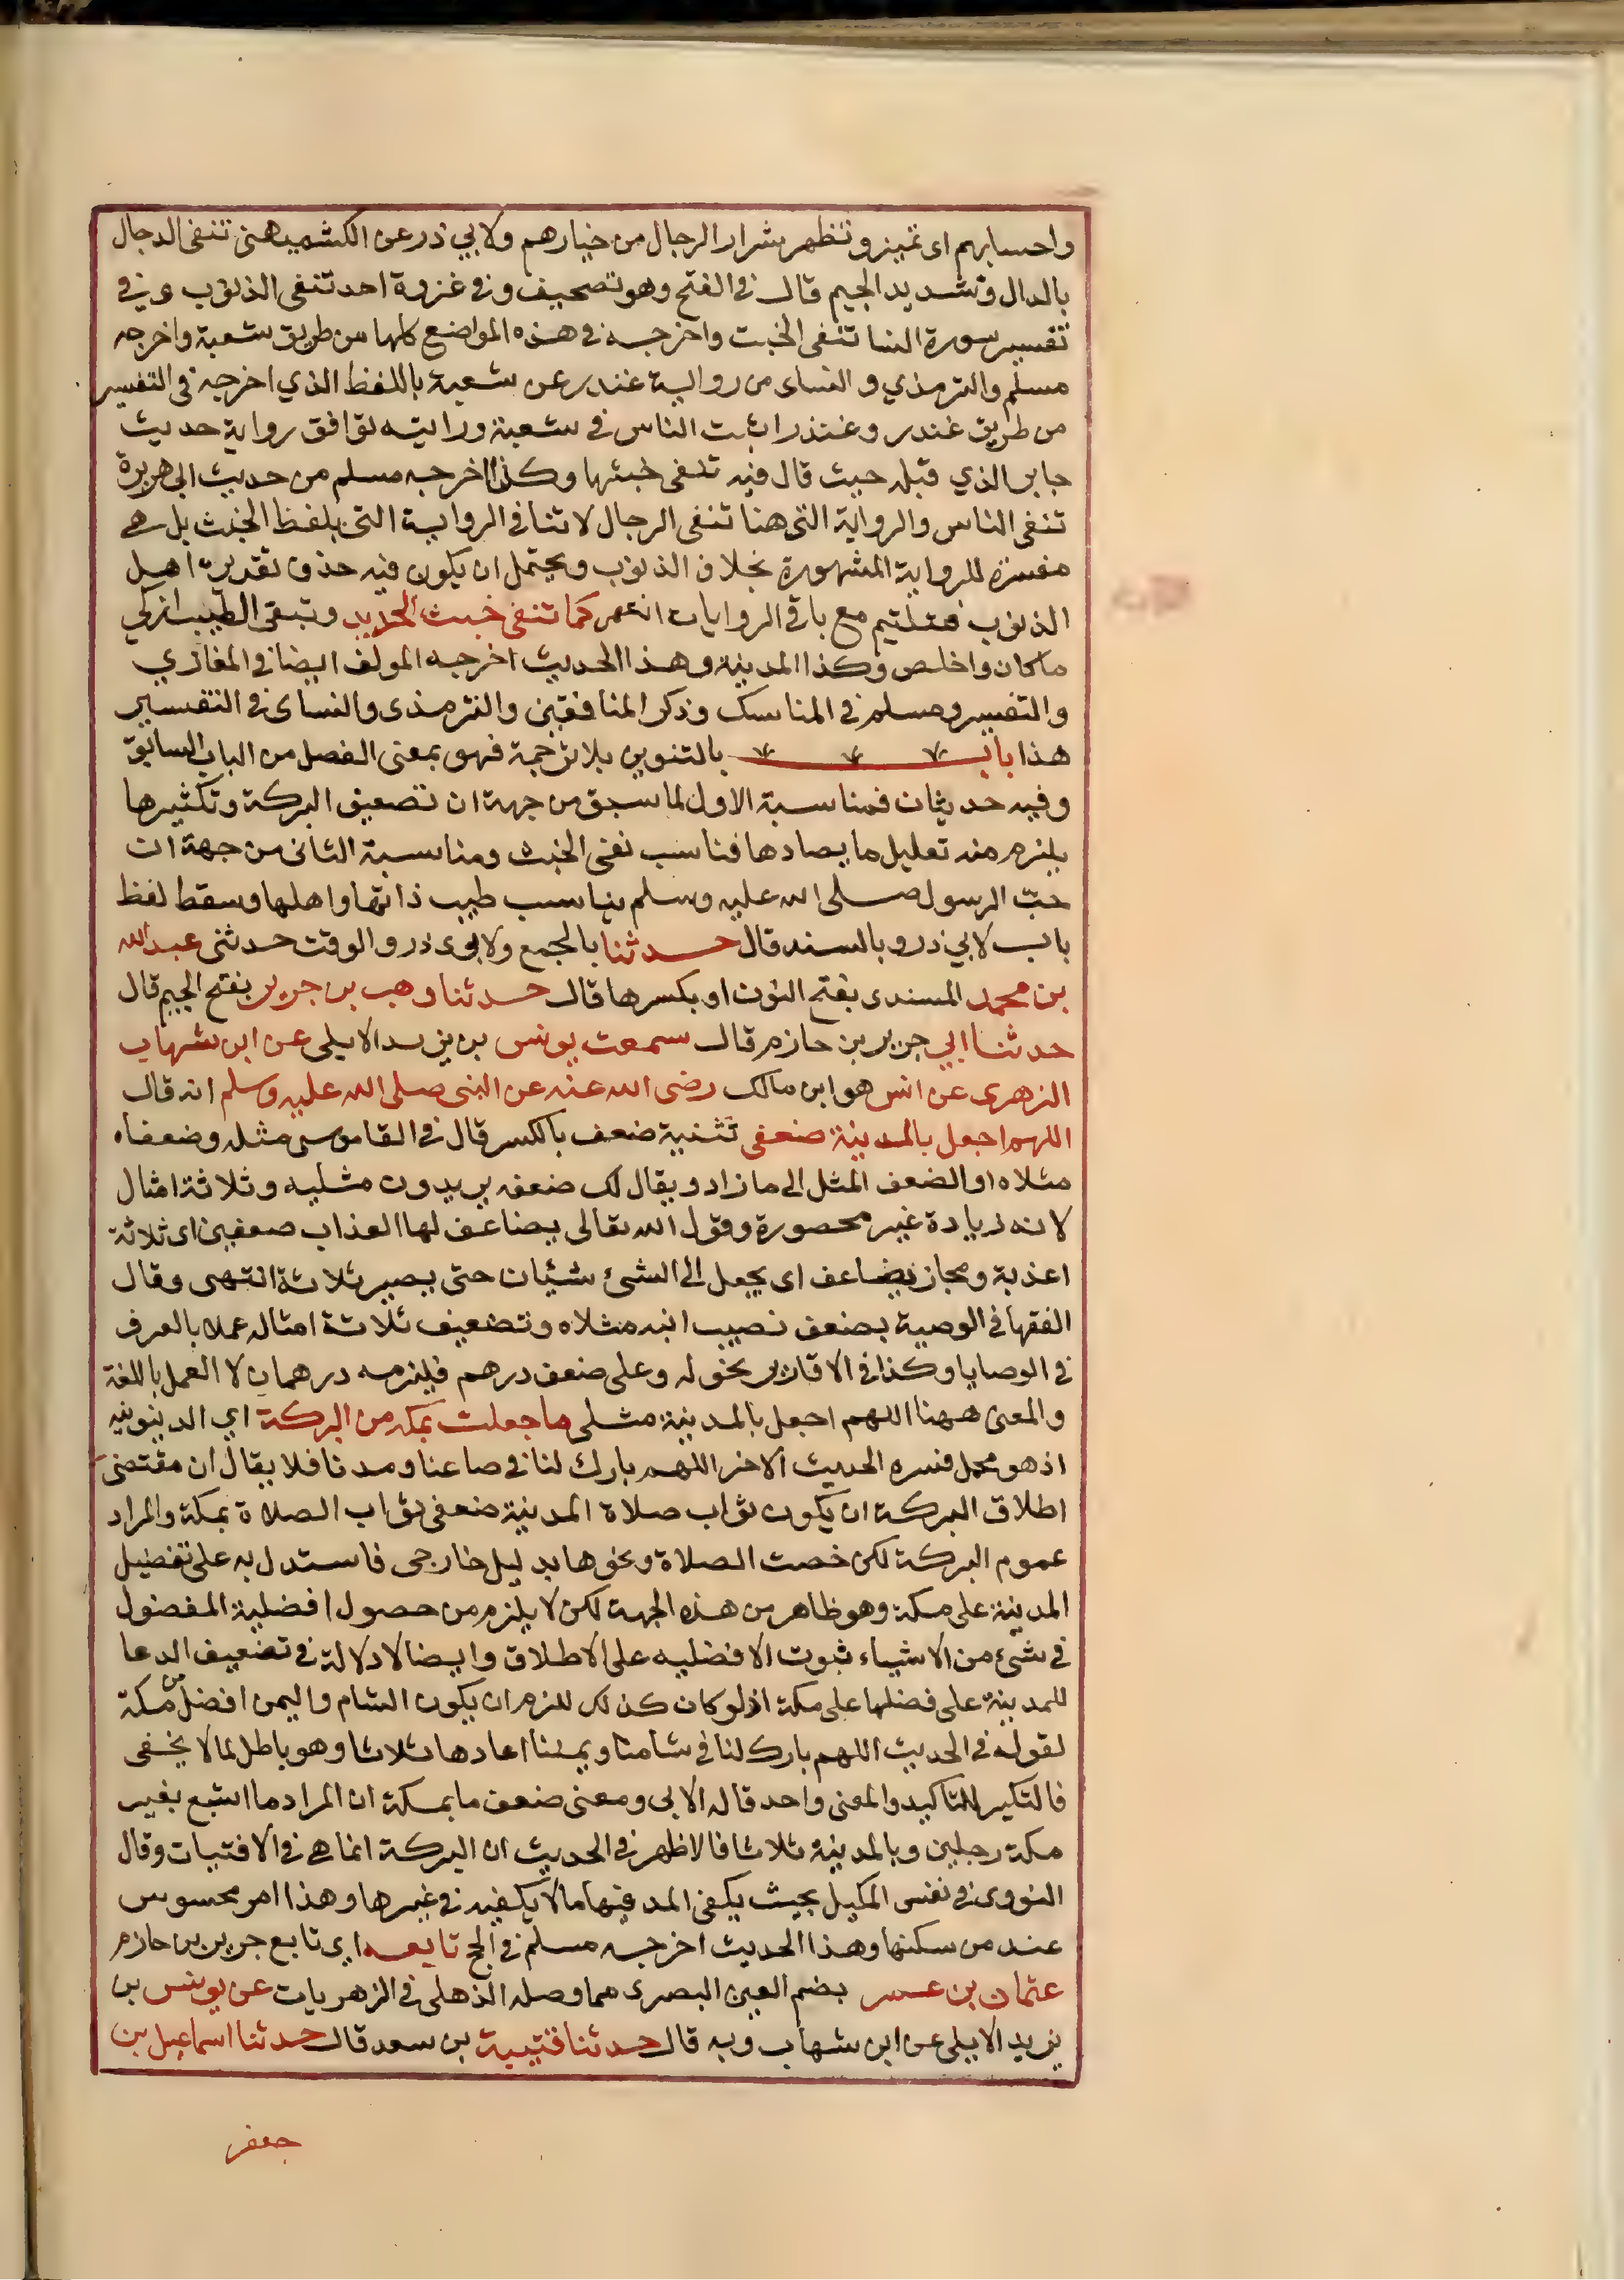 واحسابهم اى تميز وتظهر شرار الرجال من خيارهم ولابي ذر عن الكشميهنى تنفى الدجال
بالدال وتشديد الجيم قال فى الفتح وهو تصحيف وفى غزوة احد تنفى الذنوب وفى
تفسير سورة النسا تنفى الخبت واخرجه فى هذه المواضع كلها من طريق شعبة واخرجه
مسلم والترمذي والنساى من رواية غندر عن شعبة باللفظ الذي اخرجه فى التفسير
من طريق غندر وغندر اثبت الناس فى شعبة وراايته توافق رواية حديث
جابر الذي قبله حيث قال فيه تنفى خبثها وكذا اخرجه مسلم من حديث ابى هريرة
تنفى الناس والرواية التى هنا تنفى الرجال لا تنافى الرواية التى بلفظ الخبث بل هى
مفسرة للرواية المشهورة بخلاف الذنوب ويحتمل ان يكون فيه حذف تقديره اهل
الذنوب فتلتيم مع باقى الروايات انتهى كما تنفى خبث الحديد وتبقى الطيب ازكى
ما كان واخلص وكذا المدينة وهذا الحديث اخرجه المولف ايضا فى المغازي
والتفسير ومسلم فى المناسك وذكر المنافقين والترمذى والنساى فى التفسير
هذا باب بالتنوين بلا ترجمة فهو بمعنى الفصل من الباب السابق
وفيه حديثان فمناسبة الاول لما سبق من جهة ان تضعيف البركة وتكثيرها
يلزم منه تعليل ما يصادها فناسب نفى الخبث ومناسبة الثانى من جهة ان
حبّ الرسول صلى الله عليه وسلم يناسب طيب ذاتها واهلها وسقط لفظ
باب لابي ذر وبالسند قال حدثنا بالجمع ولابوى ذر والوقت حدثنى عبد الله
بن محمد المسندى بفتح النون او بكسرها قال حدثنا وهب بن جرير بفتح الجيم قال
حدثنا ابي جرير بن حازم قال سمعت يونس بن يزيد الايلى عن ابن شهاب
الزهرى عن انس هو ابن مالك رضى الله عنه عن النبى صلى الله عليه وسلم انه قال
اللهم اجعل بالمدينة ضعفى تثنية ضعف بالكسر قال فى القاموس مثله وضعفاه
مثلاه او الضعف المثل الى ما زاد ويقال لك ضعفه يريدون مثليه وثلاثة امثال
لانه زيادة غير محصورة وقول الله تعالى يضاعف لها العذاب ضعفين اى ثلاثة
اعذبة ومجاز يضاعف اى يجعل الى الشئ شيئان حتى يصير ثلاثة انتهى وقال
الفقها فى الوصية بضعف نصيب ابنه مثلاه وتضعيف ثلاثة امثاله عملا بالعرف
فى الوصايا وكذا فى الاقارير نحو له وعلى ضعف درهم فيلزمه درهمان لا العمل باللغة
والمعنى ههنا اللهم اجعل بالمدينة مثلى ما جعلت بمكة من البركة اي الدينوية
اذ هو مجمل فسره الحديث الاخر اللهم بارك لنا فى صاعنا ومدنا فلا يقال ان مقتضى
اطلاق البركة ان يكون ثواب صلاة المدينة ضعفى ثواب الصلاة بمكة والمراد
عموم البركة لكن خصت الصلاة ونحوها بدليل خارجى فاستدل به على تفضيل
المدينة على مكة وهو ظاهر من هذه الجهة لكن لا يلزم من حصول افضلية المفضول
فى شئ من الاشياء ثبوت الافضليه على الاطلاق وايضا لا دلالة فى تضعيف الدعا
للمدينة على فضلها على مكة اذ لو كان كذلك للزم ان يكون الشام واليمن افضل من مكة
لقوله فى الحديث اللهم بارك لنا فى شامنا ويمننا اعادها ثلاثا وهو باطل لما لا يخفى
فالتكير للتاكيد والمعنى واحد قاله الابى ومعنى ضعف ما بمكة ان المراد ما اشبع بغير
مكة رجلين وبالمدينة ثلاثا فالاظهر فى الحديث ان البركة انما هى فى الاقتيات وقال
النووى فى نفس المكيل بحيث يكفى المد فيها ما لا يكفيه فى غيرها وهذا امر محسوس
عند من سكنها وهذا الحديث اخرجه مسلم فى الحج تابعه اي تابع جرير بن حازم
عثمان بن عمر بضم العين البصرى مما وصله الذهلى فى الزهريات عن يونس بن
يزيد الايلى عن ابن شهاب وبه قال حدثنا قتيبة بن سعد قال حدثنا اسماعيل بن
جعفر